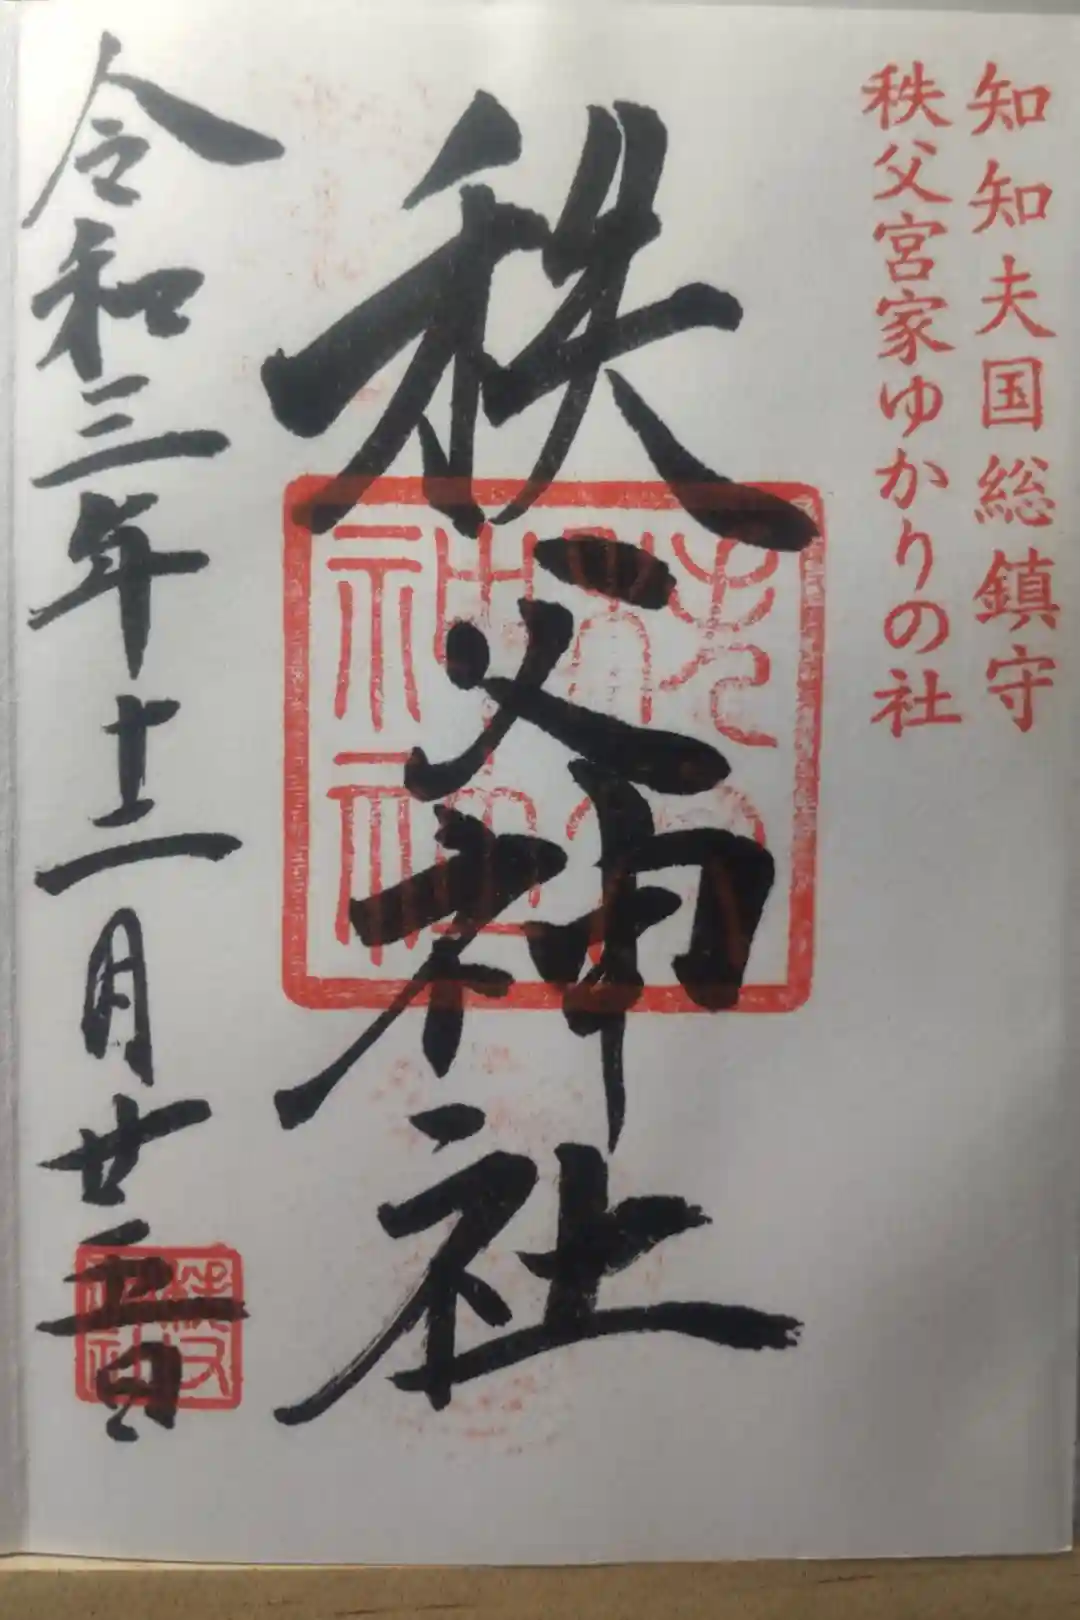 知知夫国総鎮守
秩父宮家ゆかりの社
秩父神社
秩父
神社
令和三年十二月廿日
秩父
神社